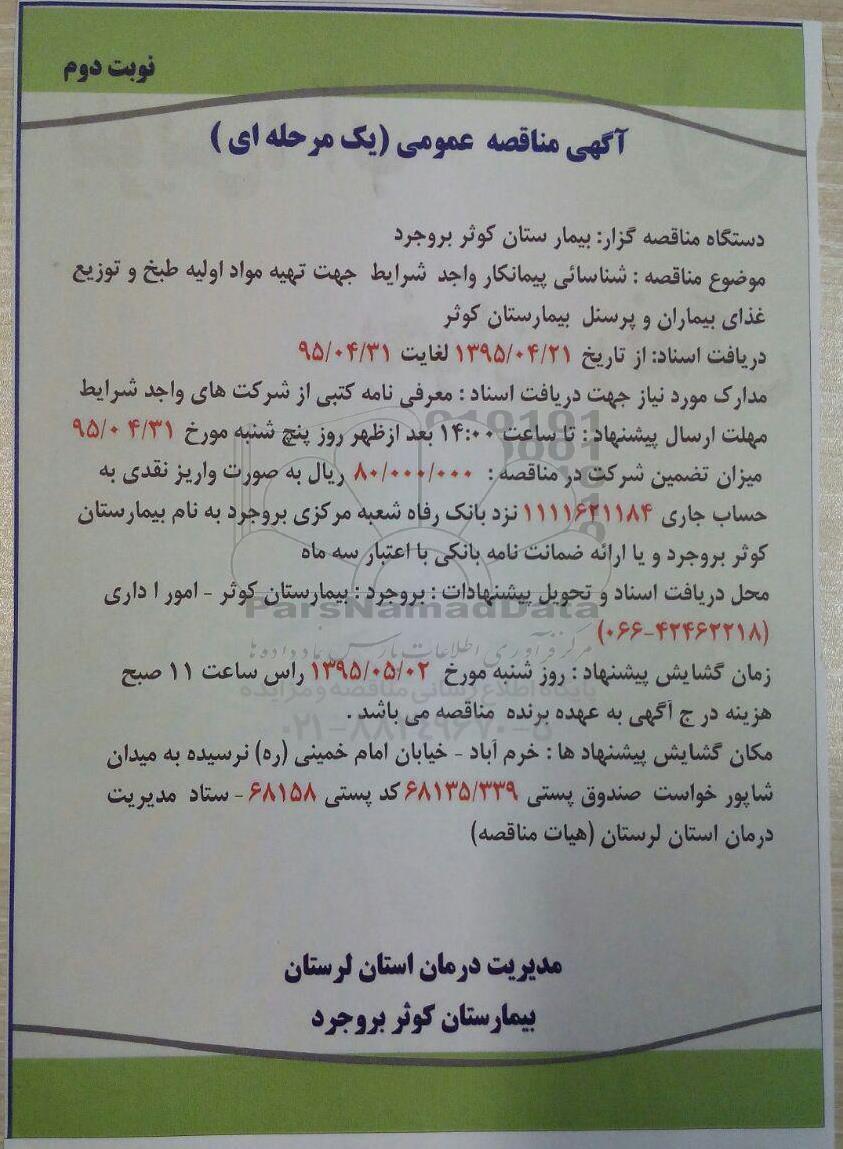 نوبت دوم
آگهی مناقصه عمومی (یک مرحله ای )
دستگاه مناقصه گزار: بیمار ستان کوثر بروجرد
موضوع مناقصه : شناسائی پیمانکار واجد شرایط جهت تهیه مواد اولیه طبخ و توزیع
غذای بیماران و پرسنل بیمارستان کوثر
دریافت اسناد: از تاریخ ۱۳۹۵/۰۴/۲۱ لغایت ۹۵/۰۴/۳۱
مدارک مورد نیاز جهت دریافت اسناد : معرفی نامه کتبی از شرکت های واجد شرایط
مهلت ارسال پیشنهاد : تا ساعت ۱۴:۰۰ بعد ازظهر روز پنچ شنبه مورخ ۹۵/۰ ۴/۳۱
میزان تضمین شرکت در مناقصه : ۸۰/۰۰۰/۰۰۰ ریال به صورت واریز نقدی به
حساب جاری ۱۱۱۱۶۲۱۱۸۴ نزد بانک رفاه شعبه مرکزی بروجرد به نام بیمارستان
کوثر بروجرد و یا ارائه ضمانت نامه بانکی با اعتبار سه ماه
محل دریافت اسناد و تحویل پیشنهادات : بروجرد : بیمارستان کوثر - امور ا داری
ParsNamadData
(۰۶۶-۴۲۴۶۲۲۱۸)
مرکز فرآوری اطلاعات پارس نماد داده ها
زمان گشایش پیشنهاد : روز شنبه مورخ ۱۳۹۵/۰۵/۰۲ راس ساعت ۱۱ صبح
پایگاه اطلاع رسانی مناقصه و مزایده
هزینه در ج آگهی به عهده برنده مناقصه می باشد .
۰۲۱-۸۸۳۴۹۶۷۰-۵
مکان گشایش پیشنهاد ها : خرم آباد - خیابان امام خمینی (ره) نرسیده به میدان
شاپور خواست صندوق پستی ۶۸۱۳۵/۳۳۹ کد پستی ۶۸۱۵۸ - ستاد مدیریت
درمان استان لرستان (هیات مناقصه)
مدیریت درمان استان لرستان
بیمارستان کوثر بروجرد